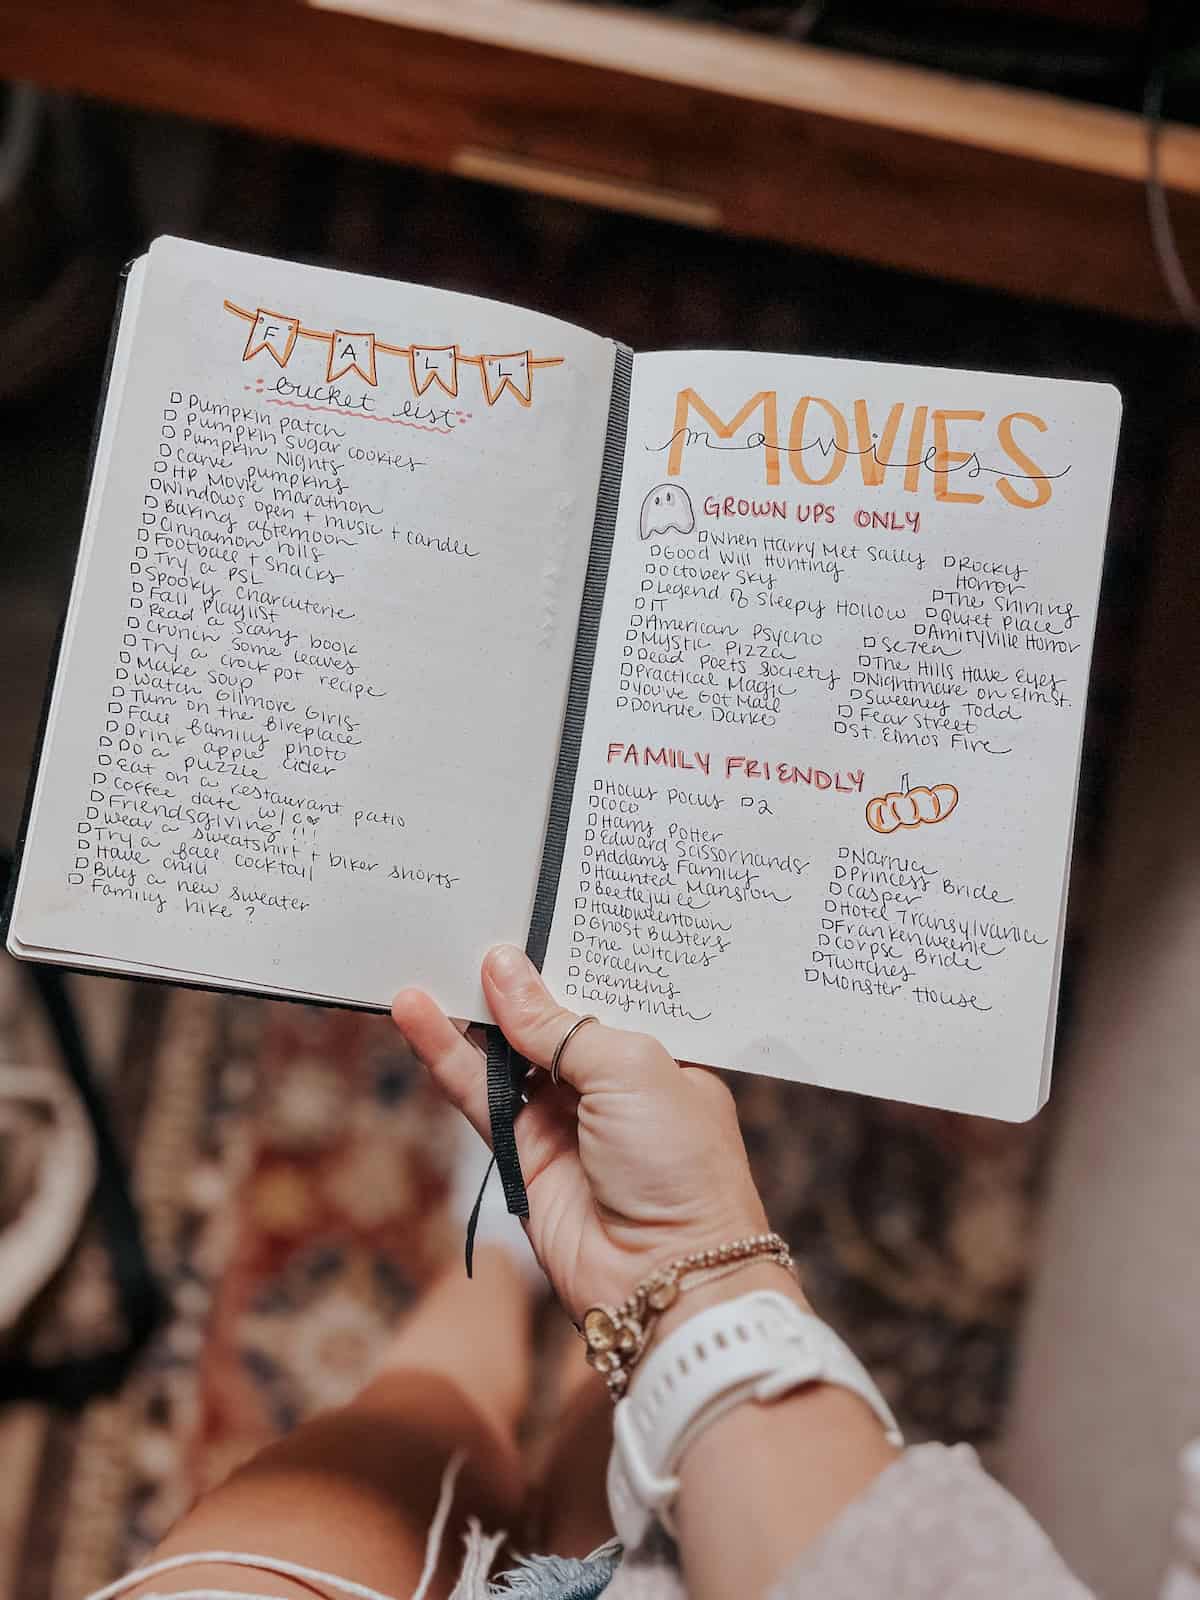 FALL
bucket list
Pumpkin patch
Pumpkin sugar cookies
Pumpkin Nights
Carve pumpkins
HP Movie marathon
Windows open + music + candle
Baking afternoon
Cinnamon rolls
Football + snacks
Try a PSL
Spooky Charcuterie
Fall Playlist
Read a scary book
Crunch some leaves
Try a crock pot recipe
Make soup
Watch Gilmore Girls
Turn on the fireplace
Fall family photo
Drink apple cider
Do a puzzle
Eat on a restaurant patio
Coffee date w/
Friendsgiving!!!
Wear a sweatshirt + biker shorts
Try a fall cocktail
Have chili
Buy a new sweater
Family hike?
MOVIES
movies
GROWN UPS ONLY
When Harry Met Sally
Good Will Hunting
October Sky
Legend of Sleepy Hollow
IT
American Psycho
Mystic Pizza
Dead Poets Society
Practical Magic
You've Got Mail
Donnie Darko
Rocky
Horror
The Shining
Quiet Place
Amityville Horror
Se7en
The Hills Have Eyes
Nightmare on Elm St.
Sweeney Todd
Fear Street
St. Elmos Fire
FAMILY FRIENDLY
Hocus Pocus 2
Coco
Harry Potter
Edward Scissorhands
Addams Family
Haunted Mansion
Beetlejuice
Halloweentown
Ghost Busters
The Witches
Coraline
Gremlins
Labyrinth
Narnia
Princess Bride
Casper
Hotel Transylvania
Frankenweenie
Corpse Bride
Twitches
Monster House